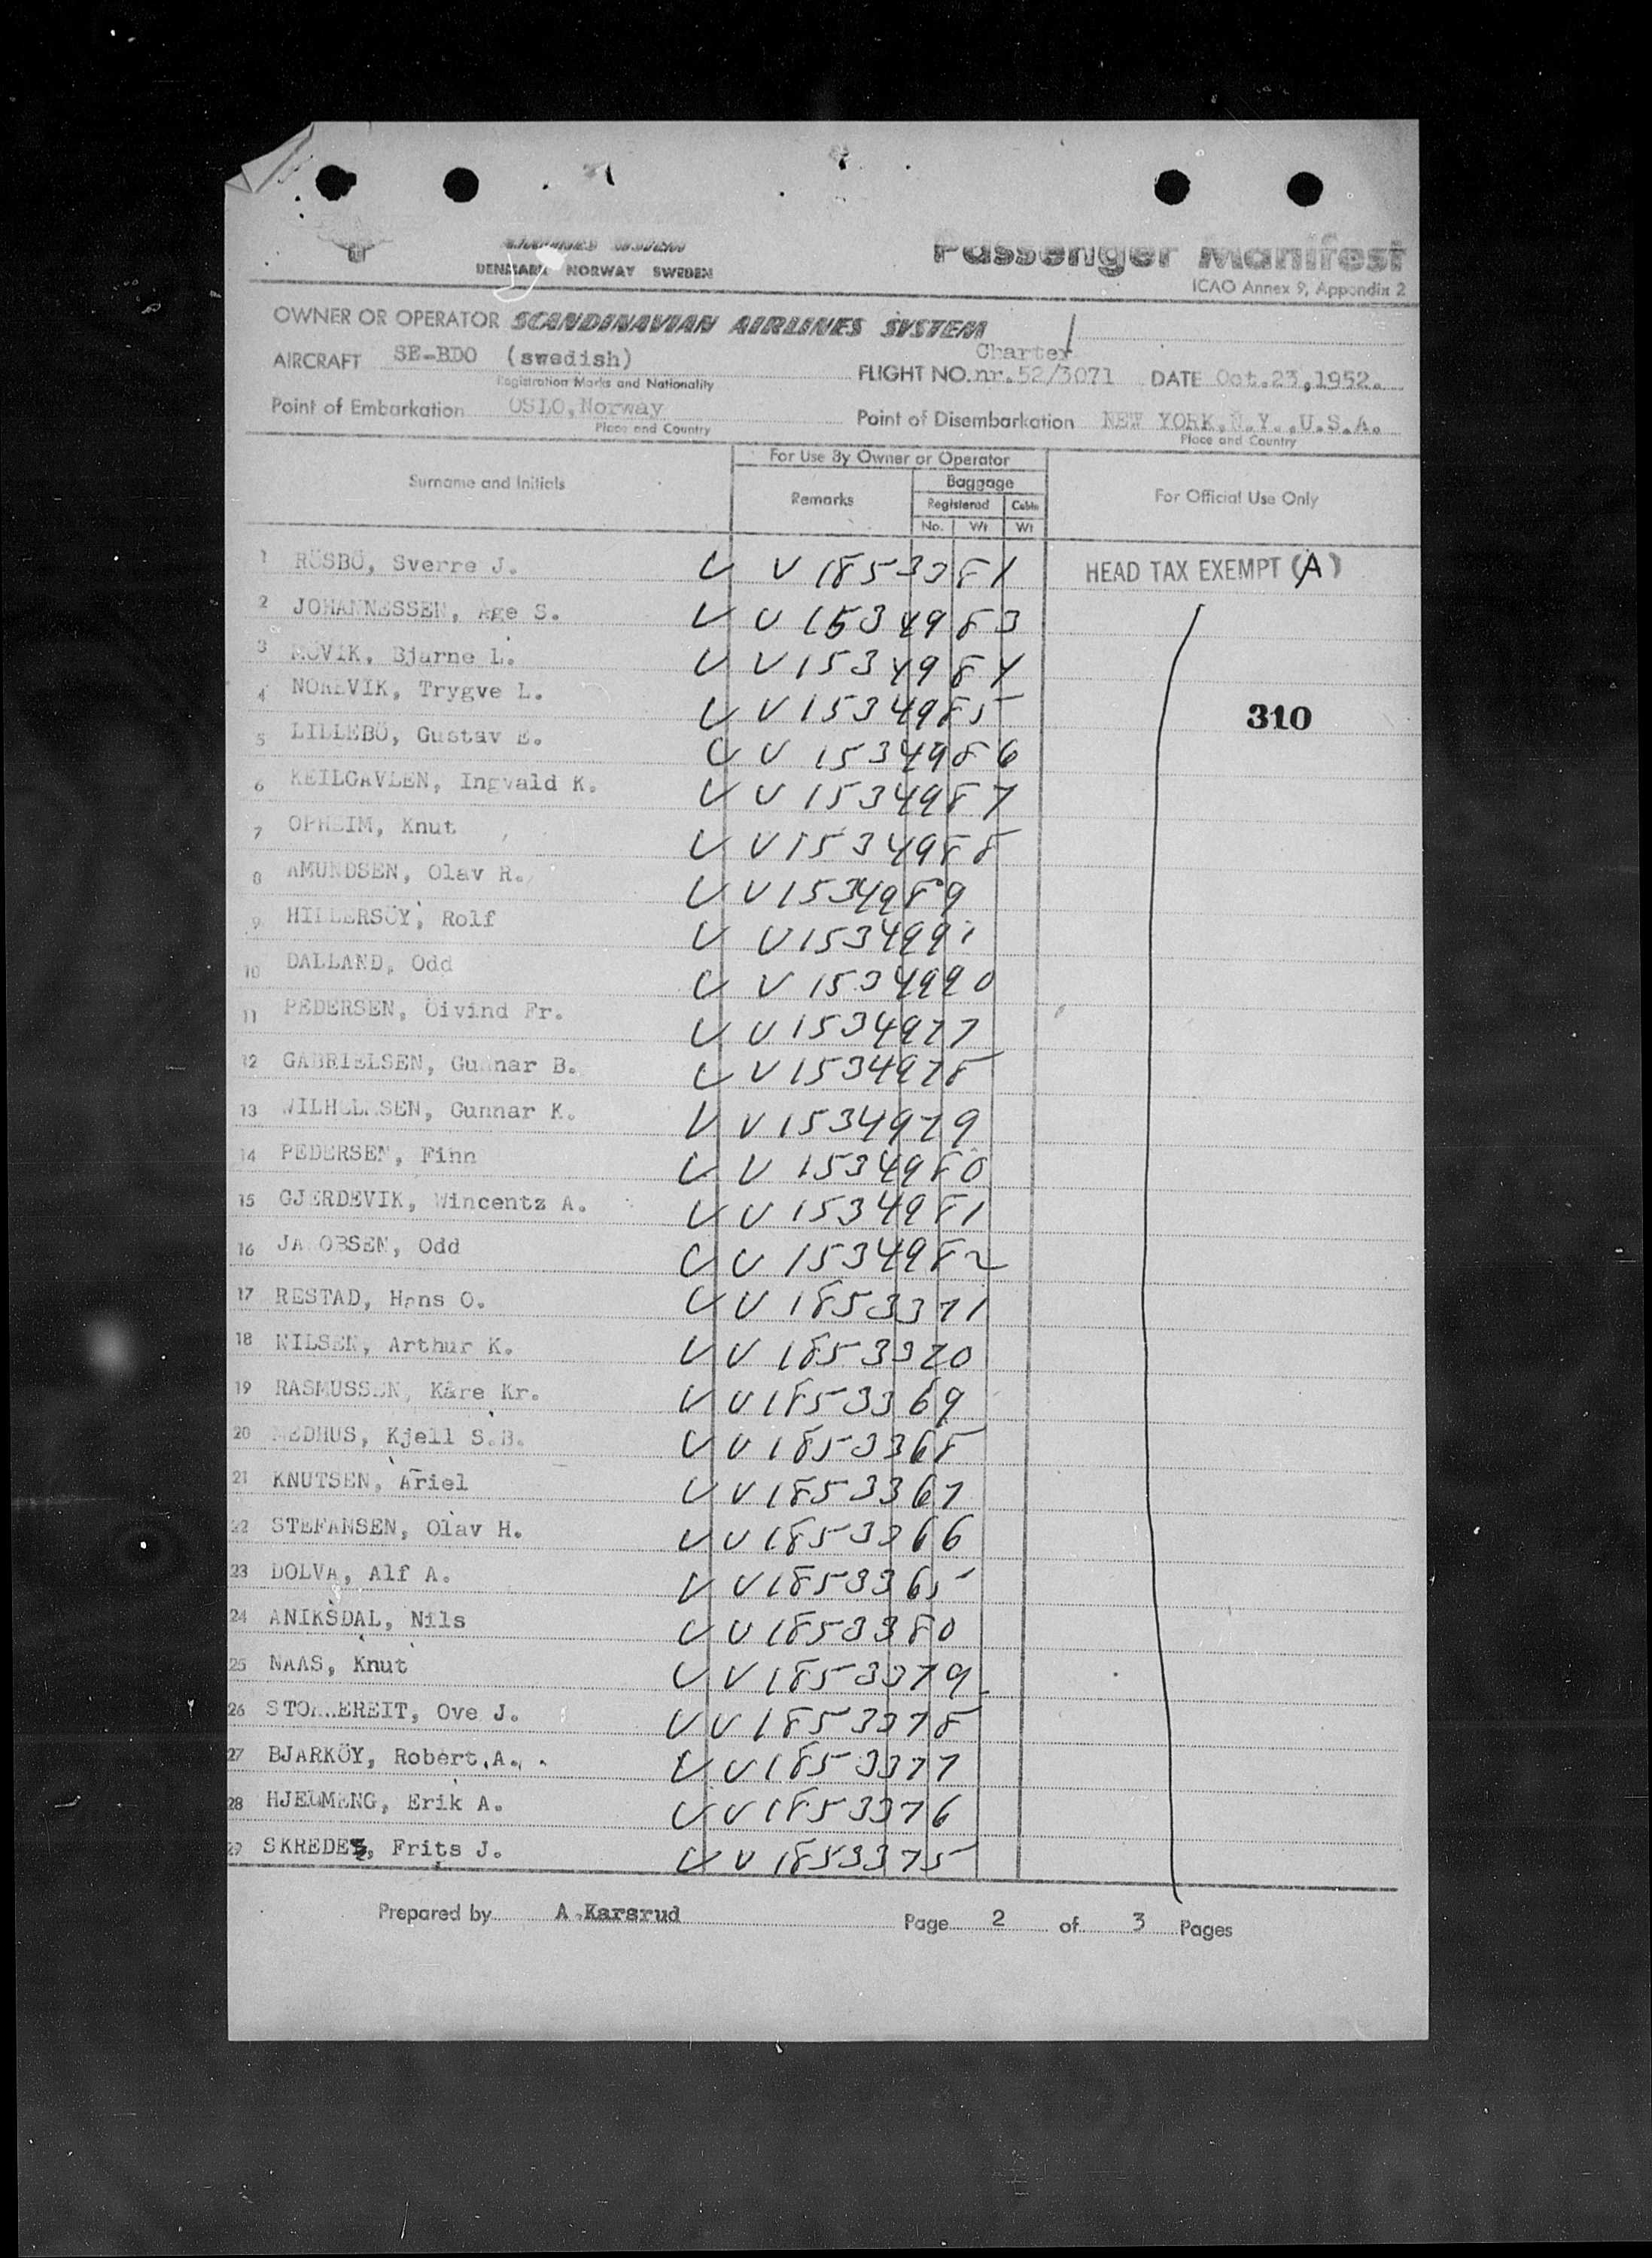 AIRLINES SYSTEM
DENMARK NORWAY SWEDEN
Passenger Manifest
ICAO Annex 9, Appendix 2
OWNER OR OPERATOR SCANDINAVIAN AIRLINES SYSTEM
AIRCRAFT SE-BDO (swedish)
Registration Marks and Nationality
Charter
FLIGHT NO. nr.52/3071 DATE Oct.23,1952.
Point of Embarkation OSLO, Norway
Place and Country
Point of Disembarkation NEW YORK,N.Y.,U.S.A.
Place and Country
Surname and Initials
For Use By Owner or Operator
Remarks
Baggage
Registered Cabin
No. Wt Wt
For Official Use Only
1 RÖSBÖ, Sverre J. V V 1853381 HEAD TAX EXEMPT (A)
2 JOHANNESSEN, Age S. V V 1534983
3 MÖVIK, Bjarne L. V V 1534984
4 NOREVIK, Trygve L. V V 1534985
310
5 LILLEBÖ, Gustav E. V V 1534986
6 KEILGAVLEN, Ingvald K. V V 1534987
7 OPHEIM, Knut V V 1534988
8 AMUNDSEN, Olav R. V V 1534989
9 HILLERSÖY, Rolf V V 1534991
10 DALLAND, Odd V V 1534990
11 PEDERSEN, Öivind Fr. V V 1534977
12 GABRIELSEN, Gunnar B. V V 1534978
13 WILHELMSEN, Gunnar K. V V 1534979
14 PEDERSEN, Finn V V 1534980
15 GJERDEVIK, Wincentz A. V V 1534981
16 JACOBSEN, Odd V V 1534982
17 RESTAD, Hans O. V V 1853371
18 NILSEN, Arthur K. V V 1853370
19 RASMUSSEN, Kåre Kr. V V 1853369
20 MEDHUS, Kjell S.B. V V 1853368
21 KNUTSEN, Ariel V V 1853367
22 STEFANSEN, Olav H. V V 1853366
23 DOLVA, Alf A. V V 1853365
24 ANIKSDAL, Nils V V 1853380
25 NAAS, Knut V V 1853379
26 Ove J. V V 1853378
27 BJARKÖY, Robert A. V V 1853377
28 HJELMENG, Erik A. V V 1853376
29 SKREDE, Frits J. V V 1853375
Prepared by A.Karsrud Page 2 of 3 Pages